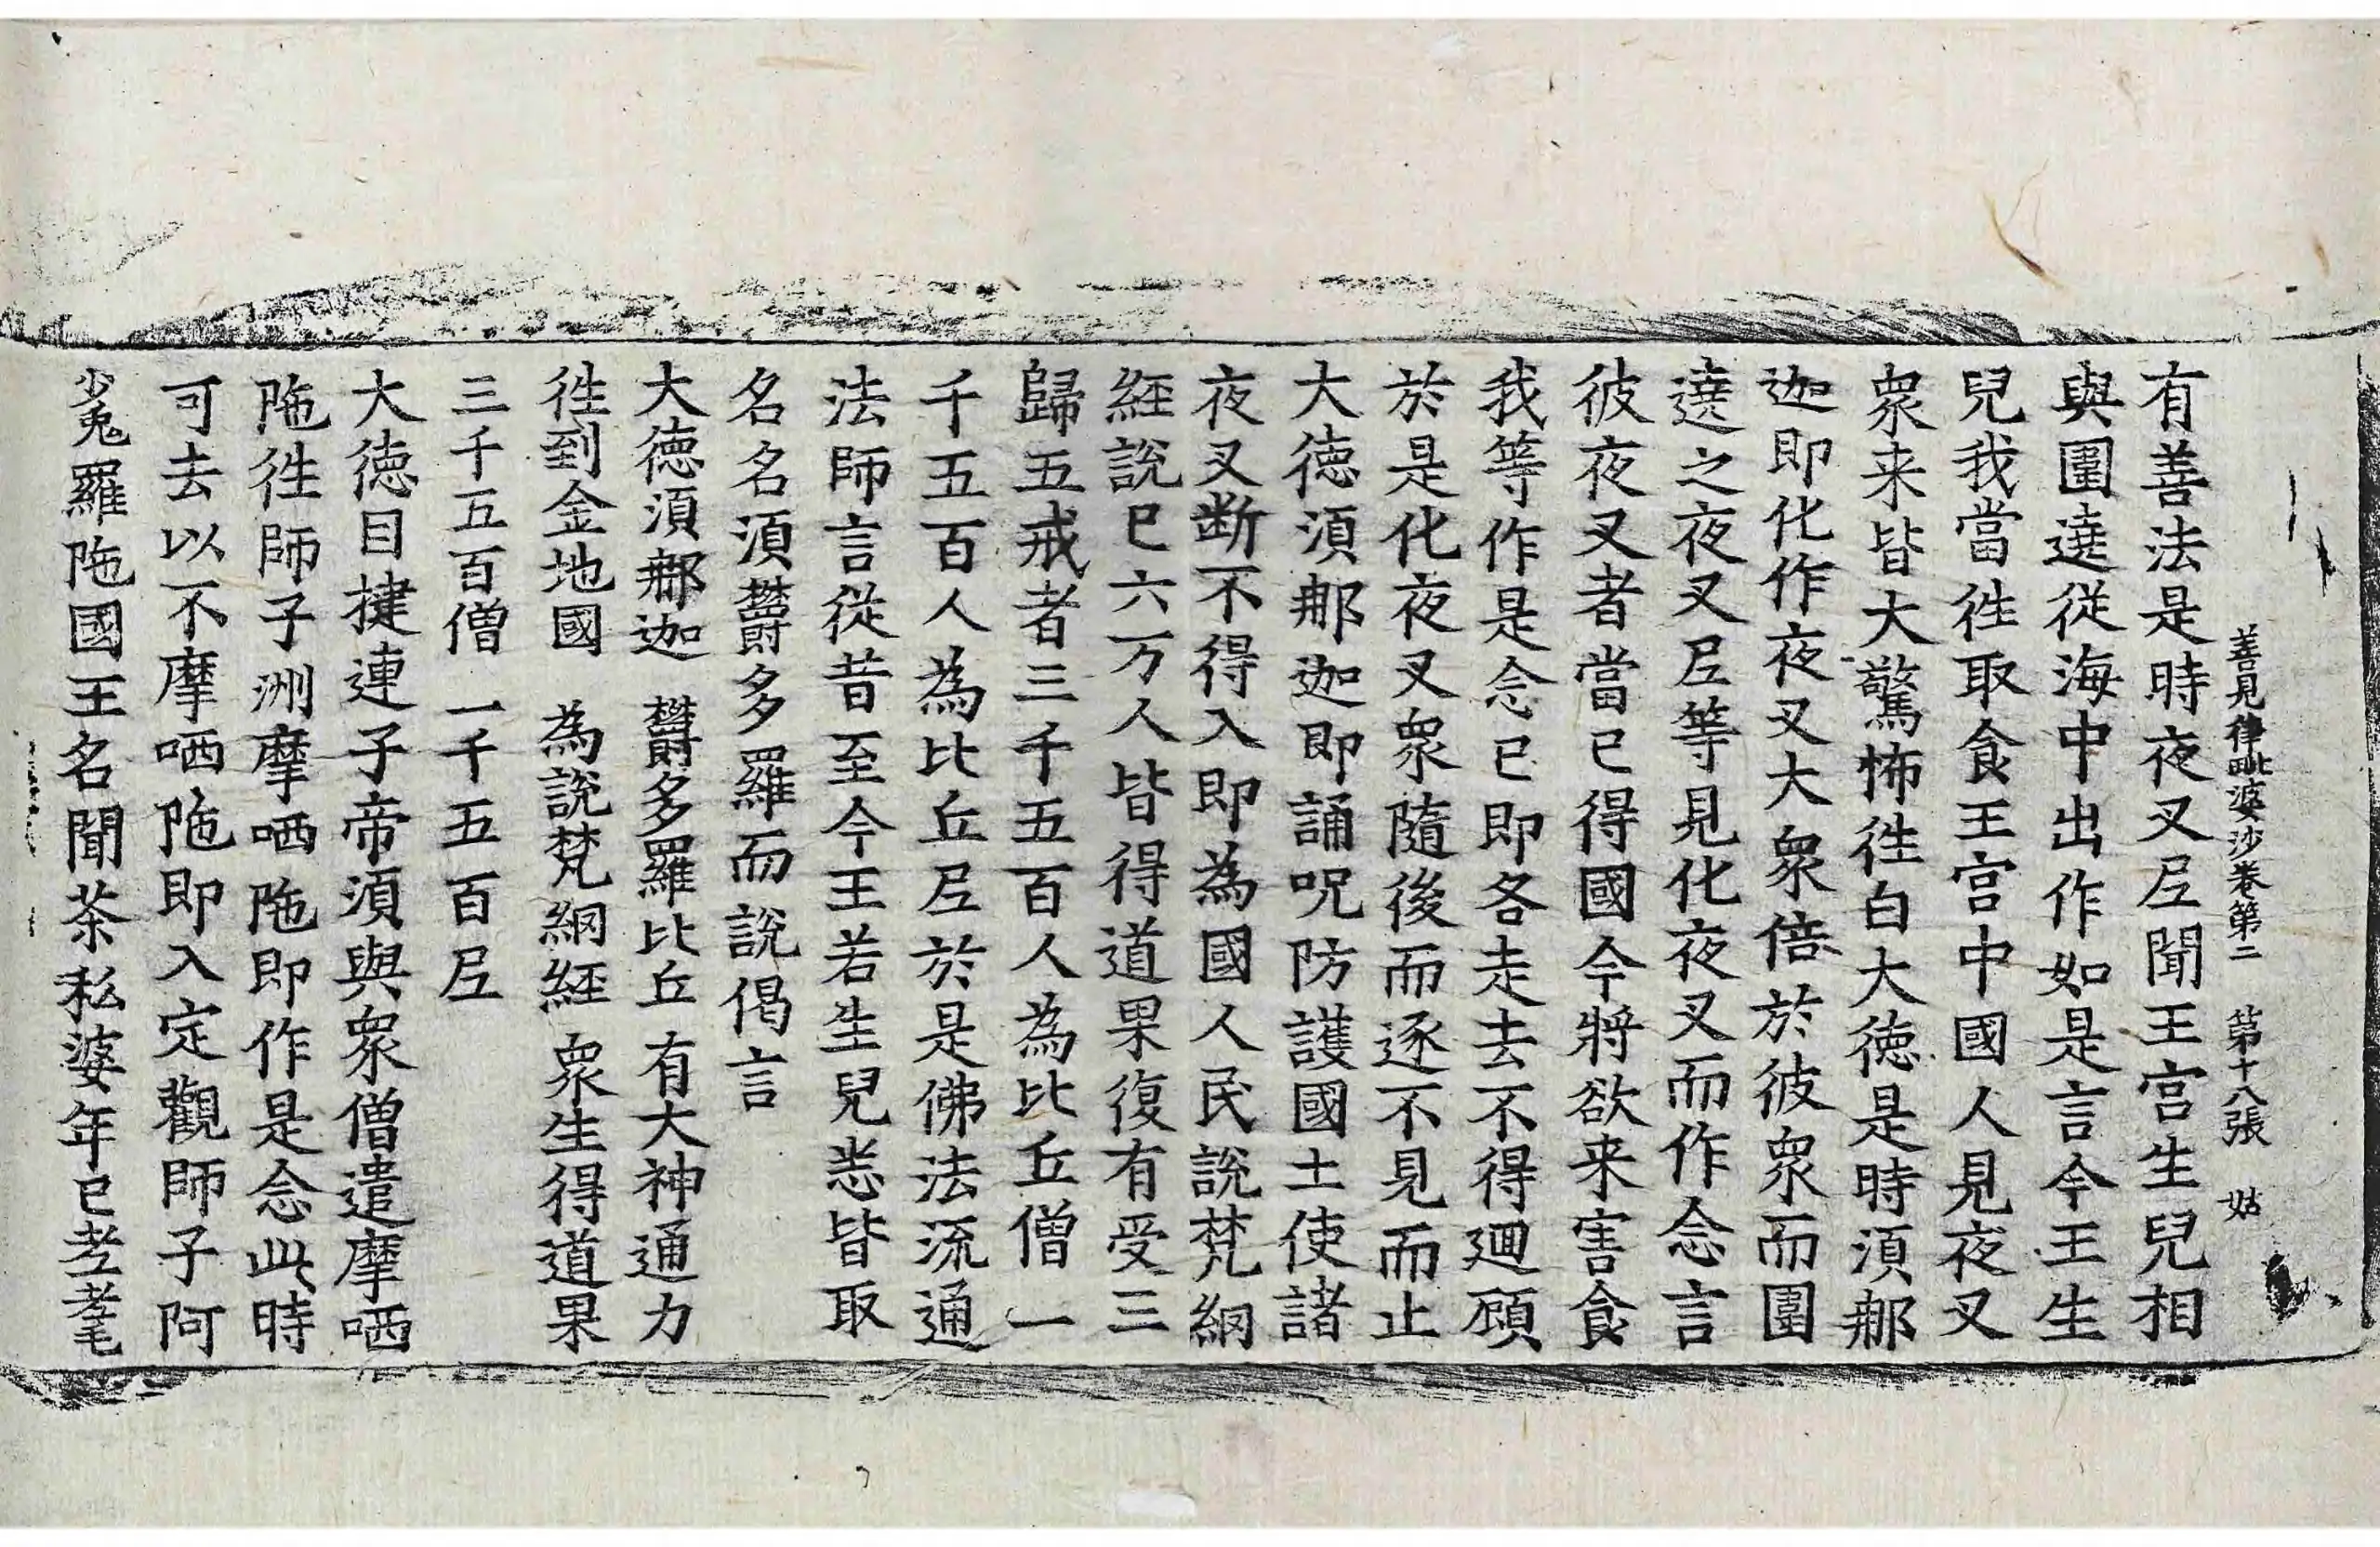 善見律毗婆沙卷第二　第十八張　姑
有善法是時夜叉尼聞王宫生兒相
與圍遶從海中出作如是言今王生
兒我當徃取食王宫中國人見夜叉
衆来皆大驚怖徃白大徳是時湏䣕
迦即化作夜叉大衆倍於彼衆而圍
遶之夜叉尼等見化夜叉而作念言
彼夜叉者當已得國今將欲来害食
我等作是念已即各走去不得迴顧
於是化夜叉衆隨後而逐不見而止
大徳湏䣕迦即誦呪防護國土使諸
夜叉断不得入即為國人民說梵網
經說已六万人皆得道果復有受三
歸五戒者三千五百人為比丘僧一
千五百人為比丘尼於是佛法流通
法師言從昔至今王若生兒悉皆取
名名湏欝多羅而說偈言
大徳湏䣕迦　欝多羅比丘　有大神通力
徃到金地國　為說梵網經　衆生得道果
三千五百僧　一千五百尼
大徳目揵連子帝湏與衆僧遣摩哂
陁徃師子洲摩哂陁即作是念此時
可去以不摩哂陁即入定觀師子阿
㝹羅陁國王名聞茶私婆年已老耄